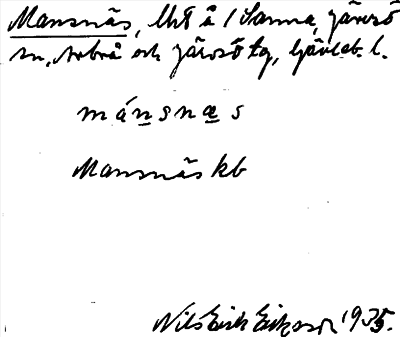 Mansnäs, Uht å 1 Sanna, Järvsö
sn, Arbrå och Järvsö tg, Gävleb. l.
mánsnæs
Mansnäs kb
Nils Erik Eriksson 1935.